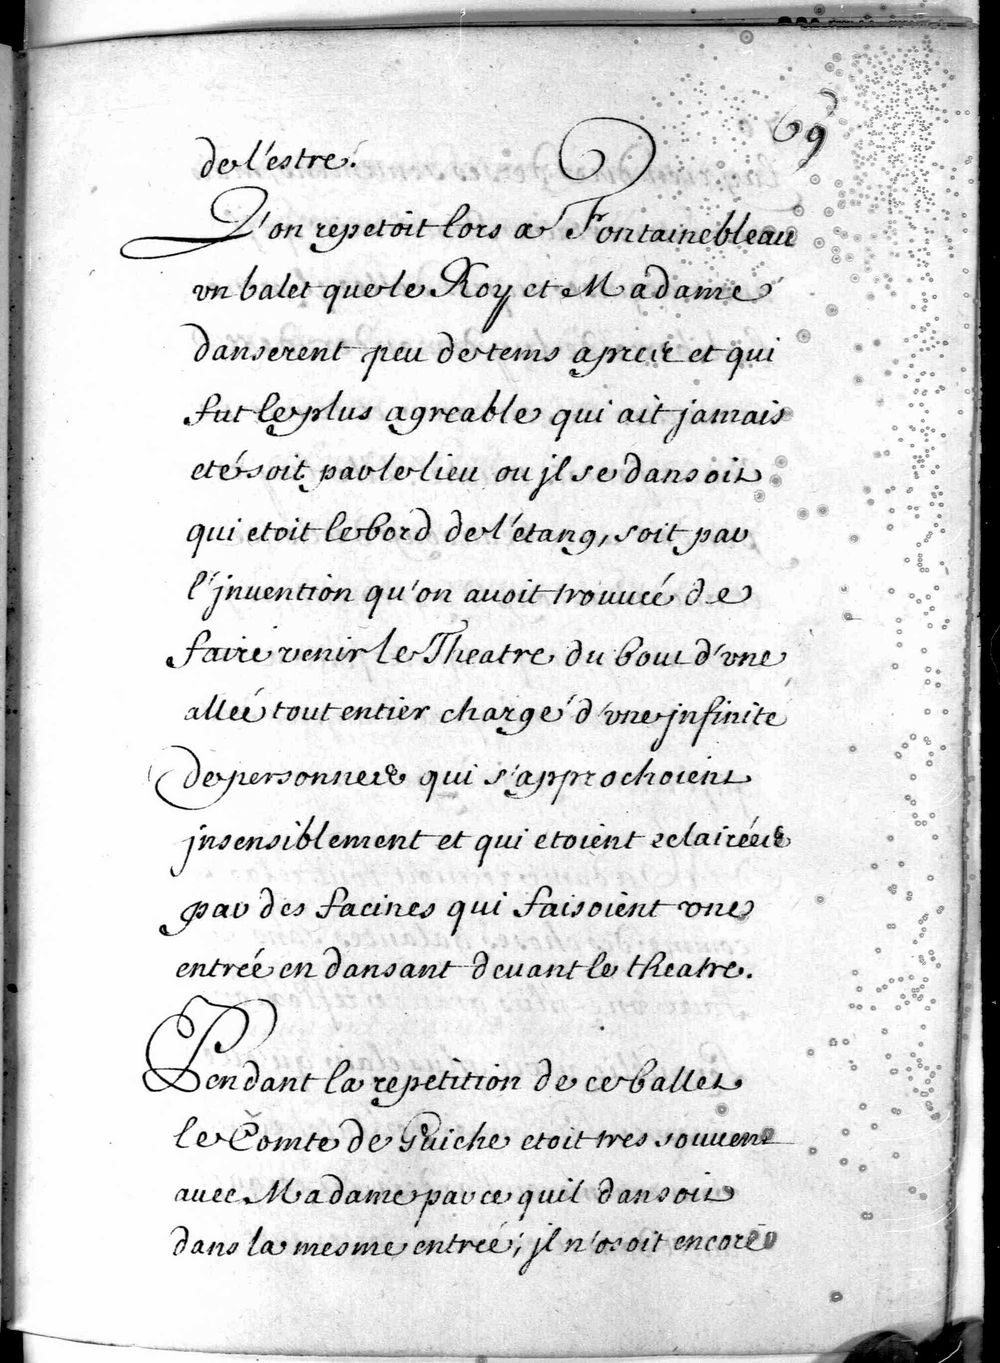 69
de l'estre.
L'on repetoit lors a Fontainebleau
vn balet que le Roy et Madame
danserent peu de tems aprez et qui
fut le plus agreable qui ait jamais
eté soit par le lieu ou jl se dansoit
qui etoit le bord de l'étang, soit par
l'jnuention qu'on auoit trouueé de
faire venir le Theatre du bout d'vne
alleé tout entier chargé d'vne jnfinite
de personnes qui s'approchoient
jnsensiblement et qui etoient eclaireés
par des facines qui faisoient vne
entreé en dansant deuant le theatre.
Pendant la repetition de ce ballet
le Comte de Guiche etoit tres souuent
auec Madame parce quil dansoit
dans la mesme entreé; jl n'osoit encore